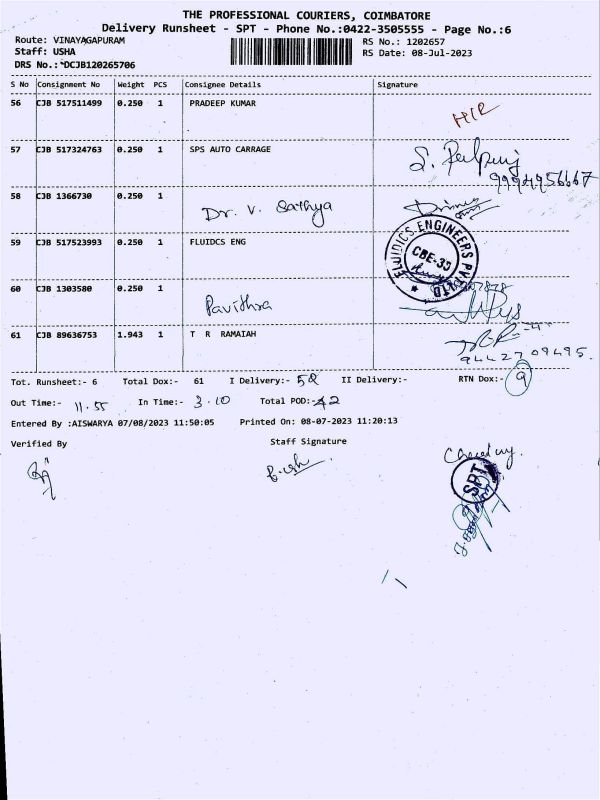 THE PROFESSIONAL COURIERS, COIMBATORE
Delivery Runsheet - SPT - Phone No.:0422-3505555 - Page No.:6
Route: VINAYAGAPURAM RS No.: 1202657
Staff: USHA RS Date: 08-Jul-2023
DRS No.: DCJB120265706
S No Consignment No Weight PCS Consignee Details Signature
56 CJB 517511499 0.250 1 PRADEEP KUMAR
57 CJB 517324763 0.250 1 SPS AUTO CARRAGE
9994956667
58 CJB 1366730 0.250 1 Dr. V. Sathya
59 CJB 517523993 0.250 1 FLUIDCS ENG FLUIDICS ENGINEERS PVT LTD CBE-35
60 CJB 1303580 0.250 1 Pavithra
61 CJB 89636753 1.943 1 T R RAMAIAH
9442709495.
Tot. Runsheet:- 6 Total Dox:- 61 I Delivery:- 52 II Delivery:- RTN Dox:- 9
Out Time:- 11.55 In Time:- 3.10 Total POD:- 42
Entered By :AISWARYA 07/08/2023 11:50:05 Printed On: 08-07-2023 11:20:13
Verified By Staff Signature
SPT